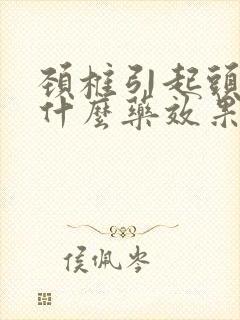 頚椎引起頭
什麼藥效果
侯佩岑